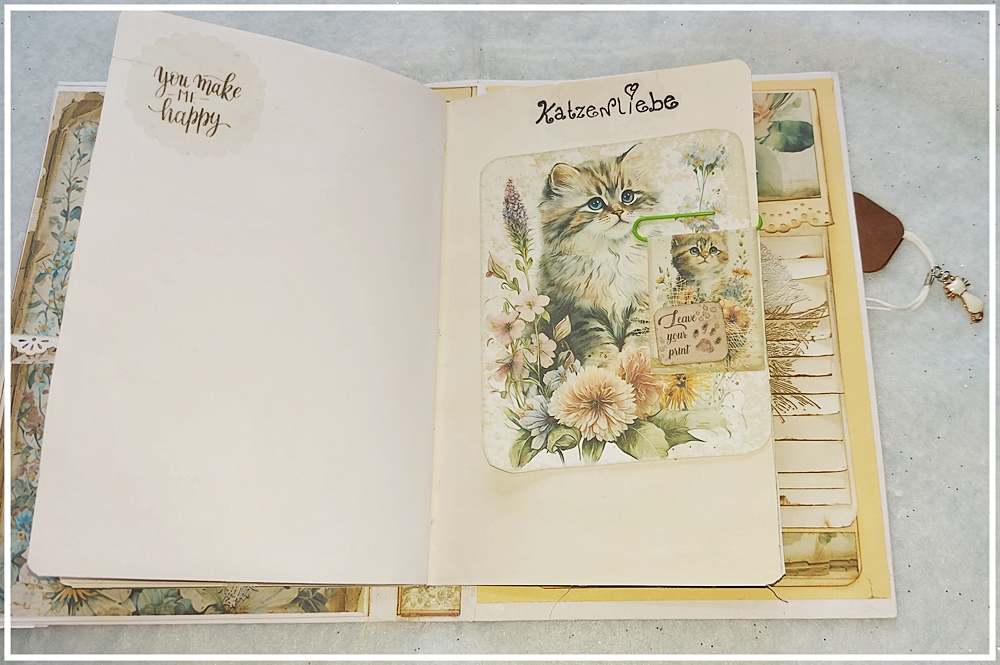 you make
ME
happy
Katzenliebe
Leave
your
print